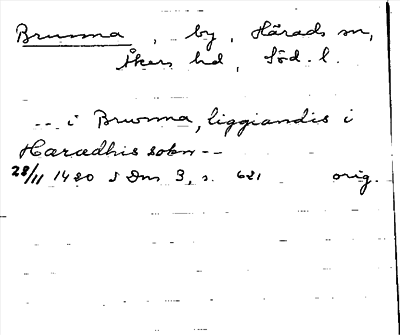 Brunna, by, Härads sn,
Åkers hd, Söd. l.
-- i Brwnna, liggiandis i
Haraedhis sokn --
28/11 1420 SDns 3, s. 621 orig.